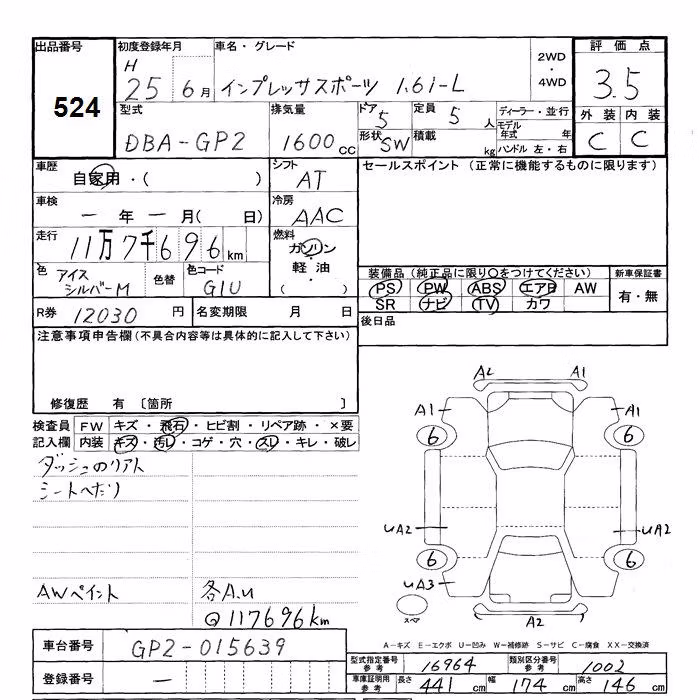 出品番号 初度登録年月 車名・グレード 2WD・4WD 評価点
524 H 25 6月 インプレッサスポーツ 1.6i-L 3.5
型式 排気量 ドア 5 定員 5人 ディーラー・並行 外装 内装
DBA-GP2 1600cc 形状 SW 積載 kg モデル年式 年 ハンドル 左・右 C C
車歴 自家用・( ) シフト AT セールスポイント (正常に機能するものに限ります)
車検 一年一月( 日) 冷房 AAC
走行 11万7千696km 燃料 ガソリン・軽油( )
色 アイスシルバーM 色替 色コード G1U
装備品 (純正品に限り○をつけてください) 新車保証書
PS PW ABS エアB AW 有・無
SR ナビ TV カワ
R券 12030円 名変期限 月 日 後日品
注意事項申告欄 (不具合内容等は具体的に記入して下さい)
修復歴 有 〔箇所 〕
検査員 FW キズ・飛石・ヒビ割・リペア跡・×要
記入欄 内装 キズ・汚レ・コゲ・穴・スレ・キレ・破レ
ダッシュのリアト
シートへたり
AWペイント 各A.u
@117696km
A2 A1
A1 A1
6 6
uA2 uA2
6 6
uA3
スペア A2
車台番号 GP2-015639
登録番号 一
A-キズ E-エクボ U-凹み W-補修跡 S-サビ C-腐食 XX-交換済
型式指定番号 参考 16964 類別区分番号 参考 1002
車庫証明用 参考 長さ 441cm 幅 174cm 高さ 146cm